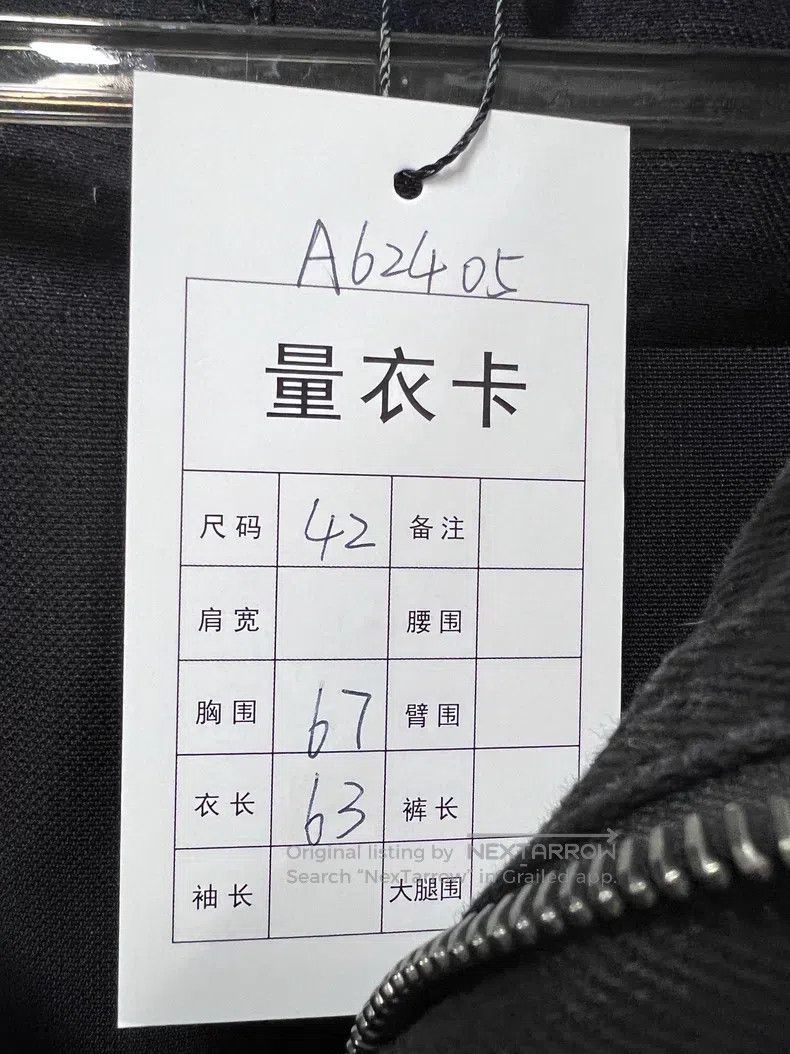 A62405
量衣卡
尺码 42 备注
肩宽 腰围
胸围 67 臂围
衣长 63 裤长
Original listing by NEXTARROW
Search "NexTarrow" in Grailed app.
袖长 大腿围